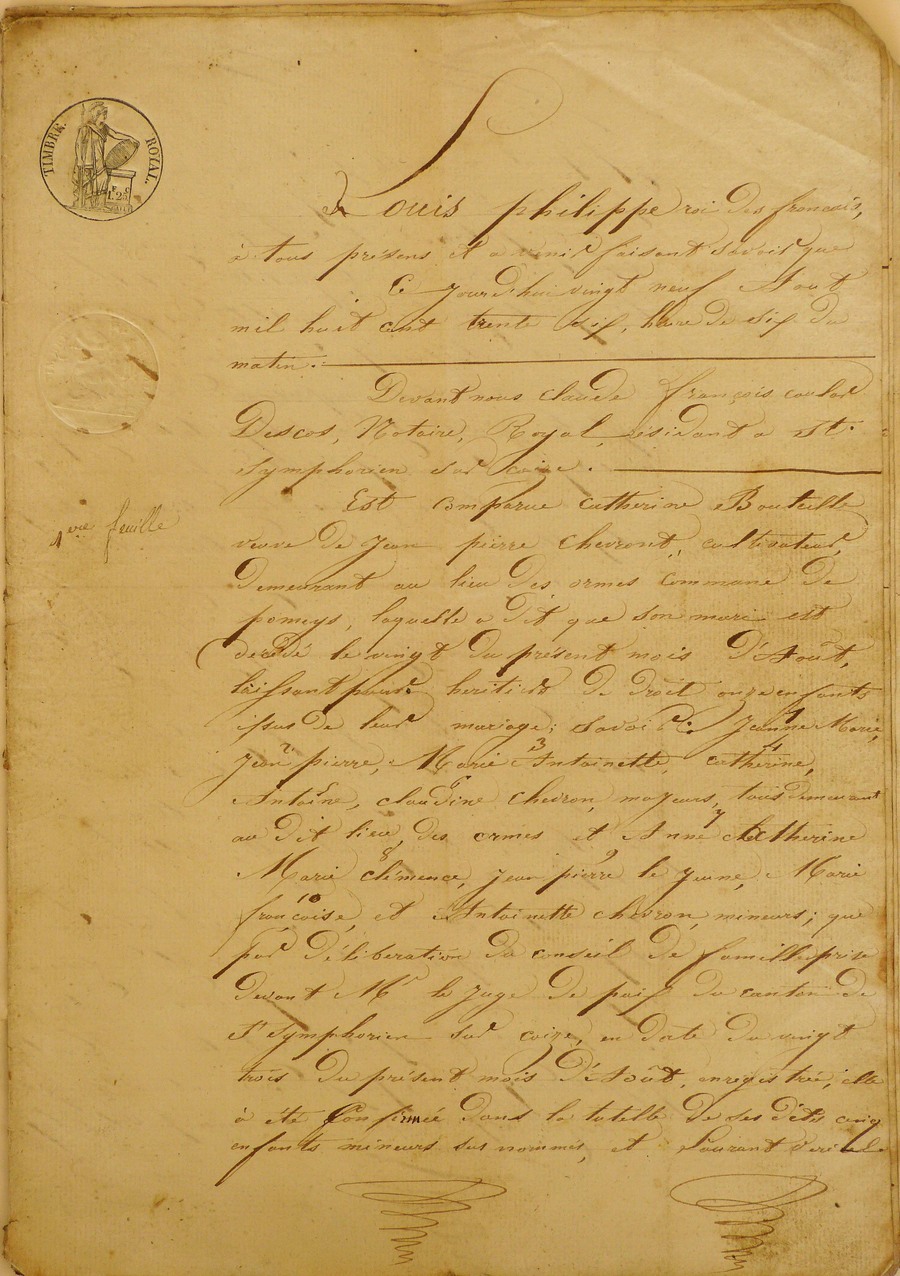 TIMBRE ROYAL.
F C
1.25
1ere feuille
Louis philippe roi des francais,
à tous présens et a venir faisant savoir que
Ce jourd'hui vingt neuf Aout
mil huit cent trente six, heure de six du
matin.
Devant nous claude françois
Descos, Notaire, Royal, résidant a St.
Symphorien sur coise.
Est comparue catherine Bouteille
veuve de Jean pierre chevront, cultivateur,
demeurant au lieu des ormes commune de
pomeys, laquelle a dit que son mari est
decédé le vingt du présent mois d'Août,
laissant pour heritiers de droit onze enfants
issus de leur mariage; savoir: 1 Jeanne Marie,
2 Jean pierre, 3 Marie Antoinette, 4 catherine,
5 Antoine, 6 claudine chevron, majeurs, tous demeurant
au dit lieu des ormes et 7 Anne catherine
8 Marie clémence, 9 jean pierre le jeune, Marie
10 françoise, et Antoinette chevron, mineurs; que
par délibération du conseil de famille prise
devant Mr le Juge de paix du canton de
St Symphorien sur coize, en date du vingt
trois du présent mois d'Août, enregistrée, elle
à été Confirmée dans la tutelle de ses dits cinq
enfants mineurs sus nommés, et